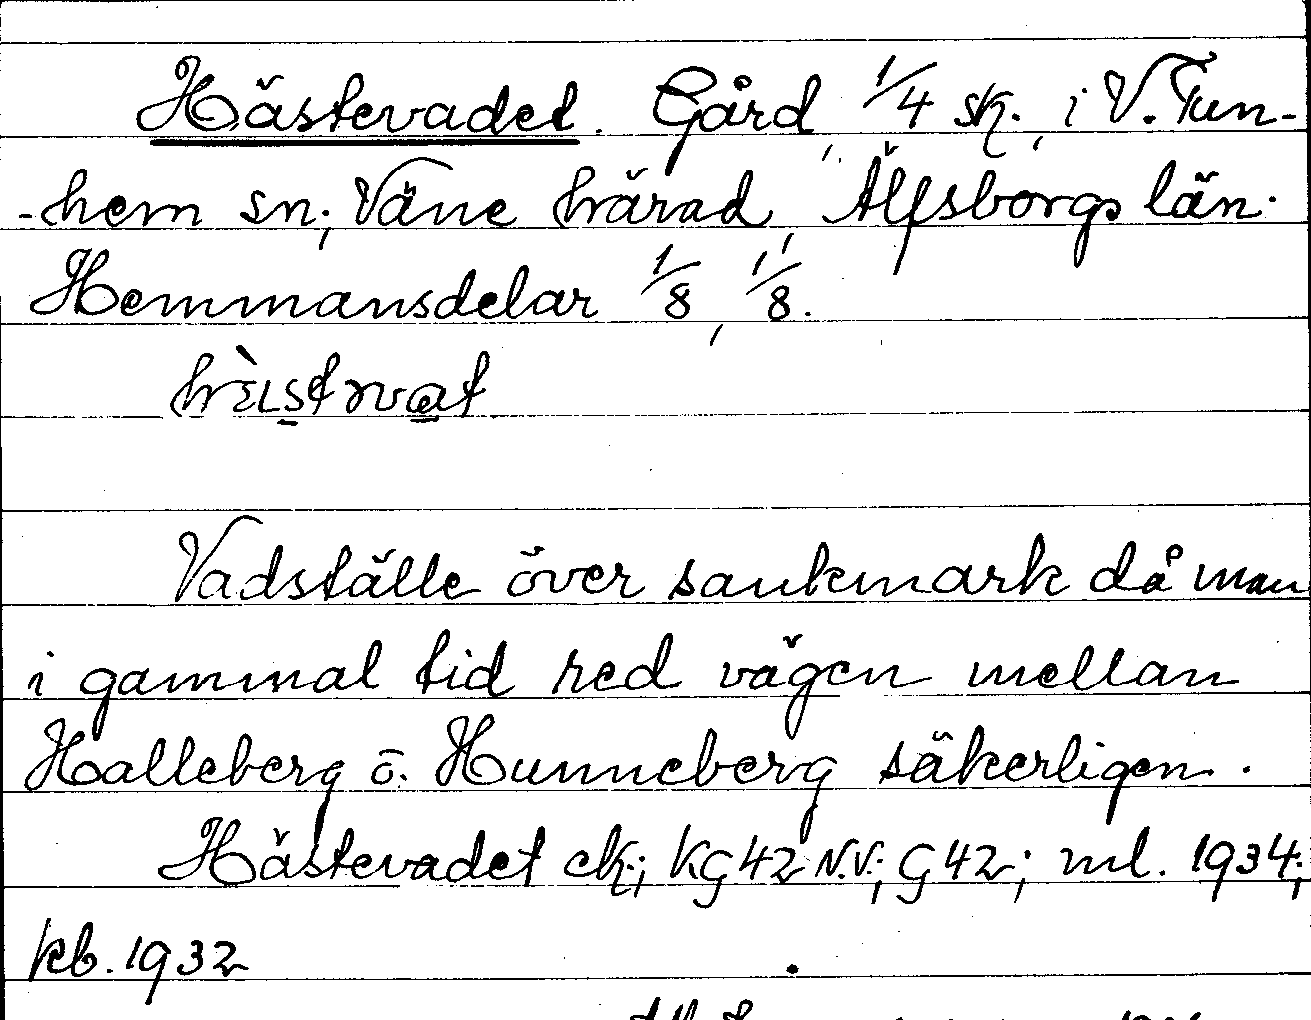 Hästevadet. Gård, 1/4 sk., i V. Tun-
-hem sn; Väne härad, Älfsborgs län.
Hemmansdelar 1/8, 1/8.
Vadställe över sankmark då man
i gammal tid red vägen mellan
Halleberg o. Hunneberg säkerligen.
Hästevadet ek.; KG42 N.V.; G42; ml. 1934;
kb. 1932